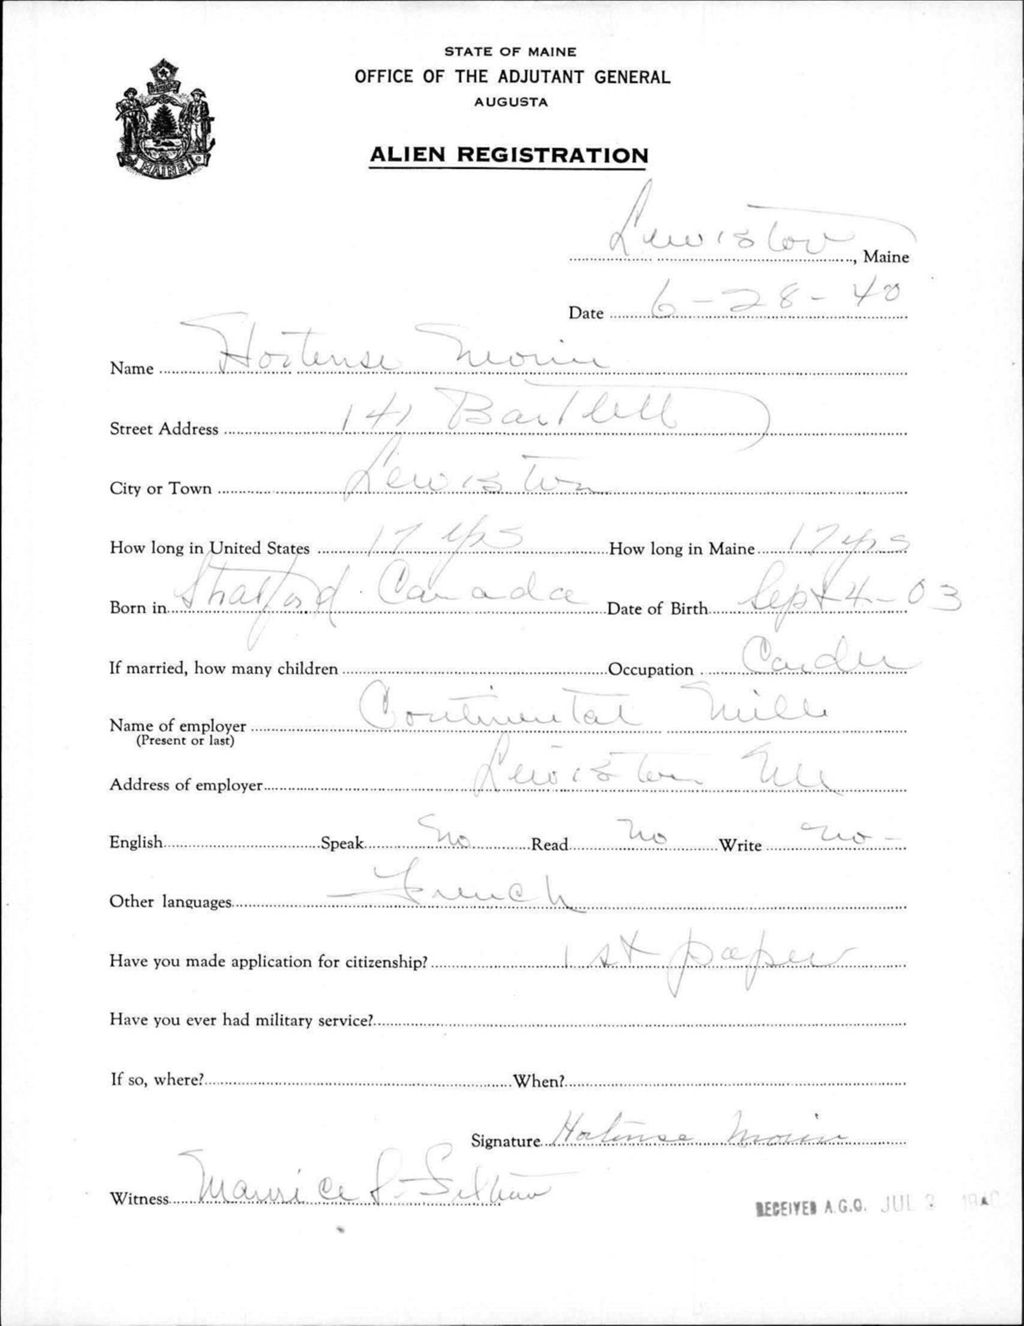 STATE OF MAINE
OFFICE OF THE ADJUTANT GENERAL
AUGUSTA
ALIEN REGISTRATION
MAINE
Lewiston, Maine
Date 6-28-40
Name Hortense Morin
Street Address 141 Bartlett
City or Town Lewiston
How long in United States 17 yrs How long in Maine 17 yrs
Born in Stratford Canada Date of Birth Sept 4-03
If married, how many children Occupation Carder
Name of employer Continental Mill
(Present or last)
Address of employer Lewiston Me
English Speak No Read No Write No
Other languages French
Have you made application for citizenship? 1st paper
Have you ever had military service?
If so, where? When?
Signature Hortense Morin
Witness Maurice
RECEIVED A.G.O. JUL